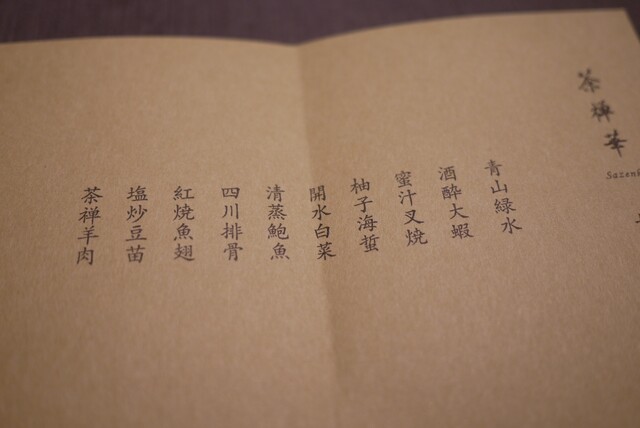 茶禅華
Sazenk
青山緑水
酒酔大蝦
蜜汁叉焼
柚子海蜇
開水白菜
清蒸鮑魚
四川排骨
紅焼魚翅
塩炒豆苗
茶禅羊肉